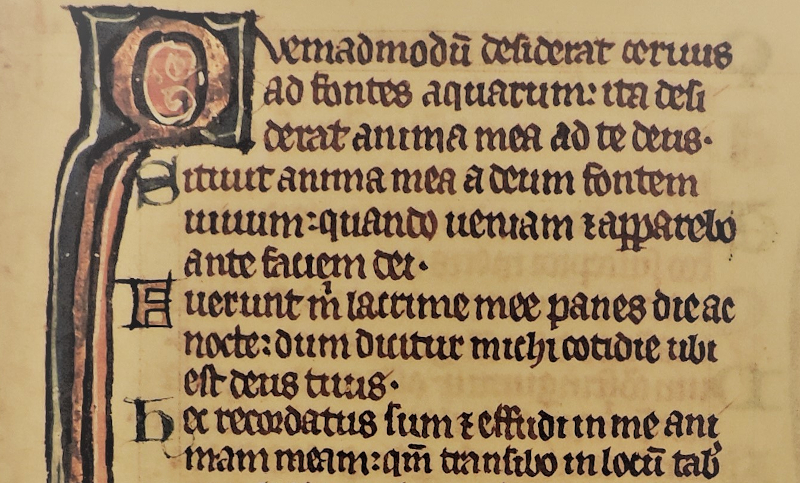 Quemadmodū desiderat ceruus
ad fontes aquarum: ita desi
derat anima mea ad te deus.
Sitiuit anima mea a deum fontem
uiuum: quando ueniam ⁊ apparebo
ante faciem dei.
Fuerunt m̍ lacrime mee panes die ac
nocte: dum dicitur michi cotidie ubi
est deus tuus.
Hec recordatus sum ⁊ effudi in me ani
mam meam: qm̄ transibo in locū tab̍